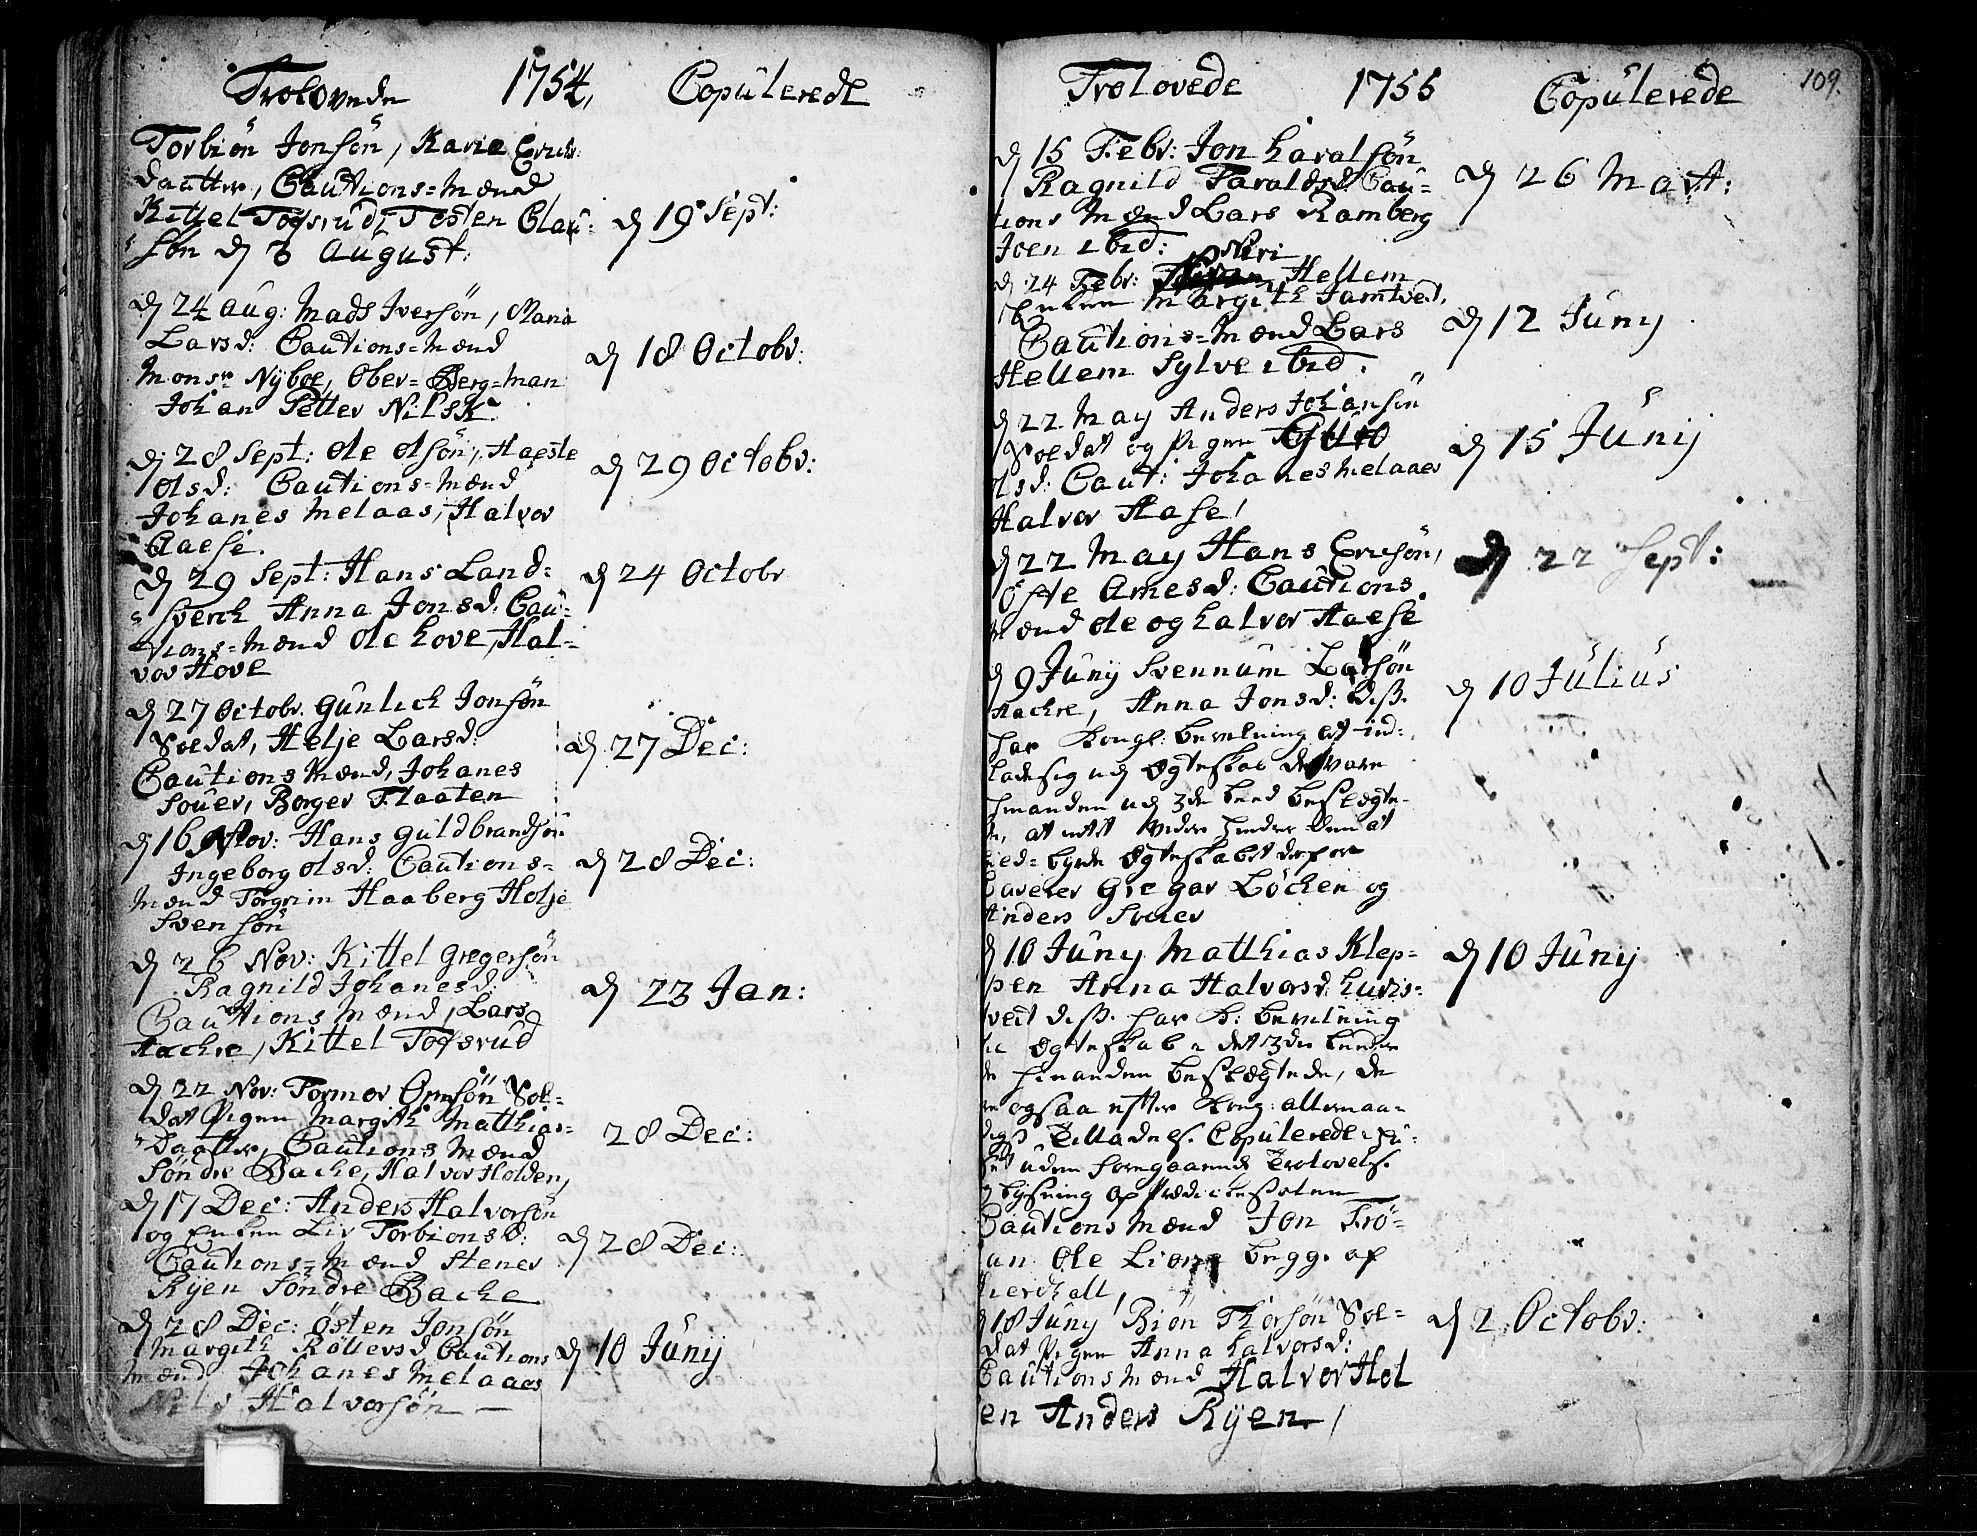 Trolovede 1754, Copulerede
Torbiön Jonsön, Karie Erichs:
daatter, Cautions=Mænd
Kittel Tofsrud, Tosten Clau:
sön d 3 August.
d 19 Sept:
d 24 Aug: Mads Iversön, Maria
Larsd: Cautions=Mænd
Monsr Nÿboe, Ober=Berg=Man
Johan Petter Nilsk.
d 18 Octobr:
d 28 Sept: Ole Olsön, Haeste
Olsd: Cautions=Mænd
Johanes Melaas, Halvor
Aaese.
d 29 Octobr:
d 29 Sept: Hans Land=
sverch Anna Jonsd: Cau=
tions=Mænd Ole Hove, Hal=
vor Hove
d 24 Octobr
d 27 Octobr. Gunlich Jonsön
Soldat, Helje Larsd:
Cautions Mænd, Johanes
Souer, Borger Flaaten
d 27 Dec:
d 16 Nov: Hans Guldbrandsön
Ingeborg Olsd: Cautions=
Mænd Torgrim Haaberg Helje
Svensön
d 28 Dec:
d 26 Nov: Kittel Gregersön
Ragnild Johanesd:
Cautions Mænd, Lars
Aachre, Kittel Tofsrud
d 23 Jan:
d 22 Nov: Tormor Omsön Sol=
dat Pigen Margith Mathias=
Daatter, Cautions Mænd
Söndre Bache, Halvor Holden,
28 Dec:
d 17 Dec: Anders Halvorsön
og Enken Liv Torbionsd:
Cautions=Mænd Stener
Rÿen Söndre Bache
d 28 Dec:
d 28 Dec: Östen Jonsön
Margith Röllevsd Cautions
Mænd Johanes Melaaes
Nils Halvorsön —
d 10 Junij
109.
Trolovede 1755 Copulerede
d 15 Febr: Jon Haralsön
Ragnild Taraldsd. Cau=
tions Mænd Lars Ramberg
Joen ibid:
d 26 Mart:
Niri
d 24 Febr: Hellem
Enken Margith Jamtveit,
Cautions=Mænd Lars
Hellem Sylve ibid.
d 12 Junij
d 22 Maij Anders Johansön
Soldat og Pigen Guro
Olsd: Caut: Johanes Melaaes
Halvor Aase,
d 15 Junij
d 22 Maij Hans Ericsön,
Öste Arnesd: Cautions
Mænd Ole og Halvor Aaese
d 22 Sept:
d 9 Junij Svennum Larsön
Aachre, Anna Jonsd: diss.
har Kongl: bevilning at ind=
lade sig udj Ægteskab de vare
hinanden udj 3de leed beslegte=
de, at intet videre hindrer dem at
byde Ægteskabet derfore
Caverer Gregar Löchen og
Anders Souer
d 10 Julius
d 10 Junij Matthias Klep=
pen Anna Halvorsd: Huvis=
veit diss. har K: bevilning
til Ægteskab i det 3die leed
hinanden beslegtede, de
ere ogsaa efter Kong: allernaa=
digst Tilladelse Copulerede i
uden foregaaende Trolovelse
og lysning af Prædickestolen
Cautions Mænd Jon Trö=
an Ole Lione begge af
Hierdhall,
d 10 Junij
d 18 Junij Biön Thorsön Sol=
dat Pigen Anna Halvorsd:
Cautions Mænd Halvor Hol
en Anders Rÿen,
d 2 Octobr: